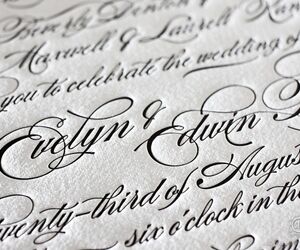 Beverly Denton &
Maxwell & Laurell
you to celebrate the wedding of
Evelyn & Edwin
twenty-third of August
six o'clock in the